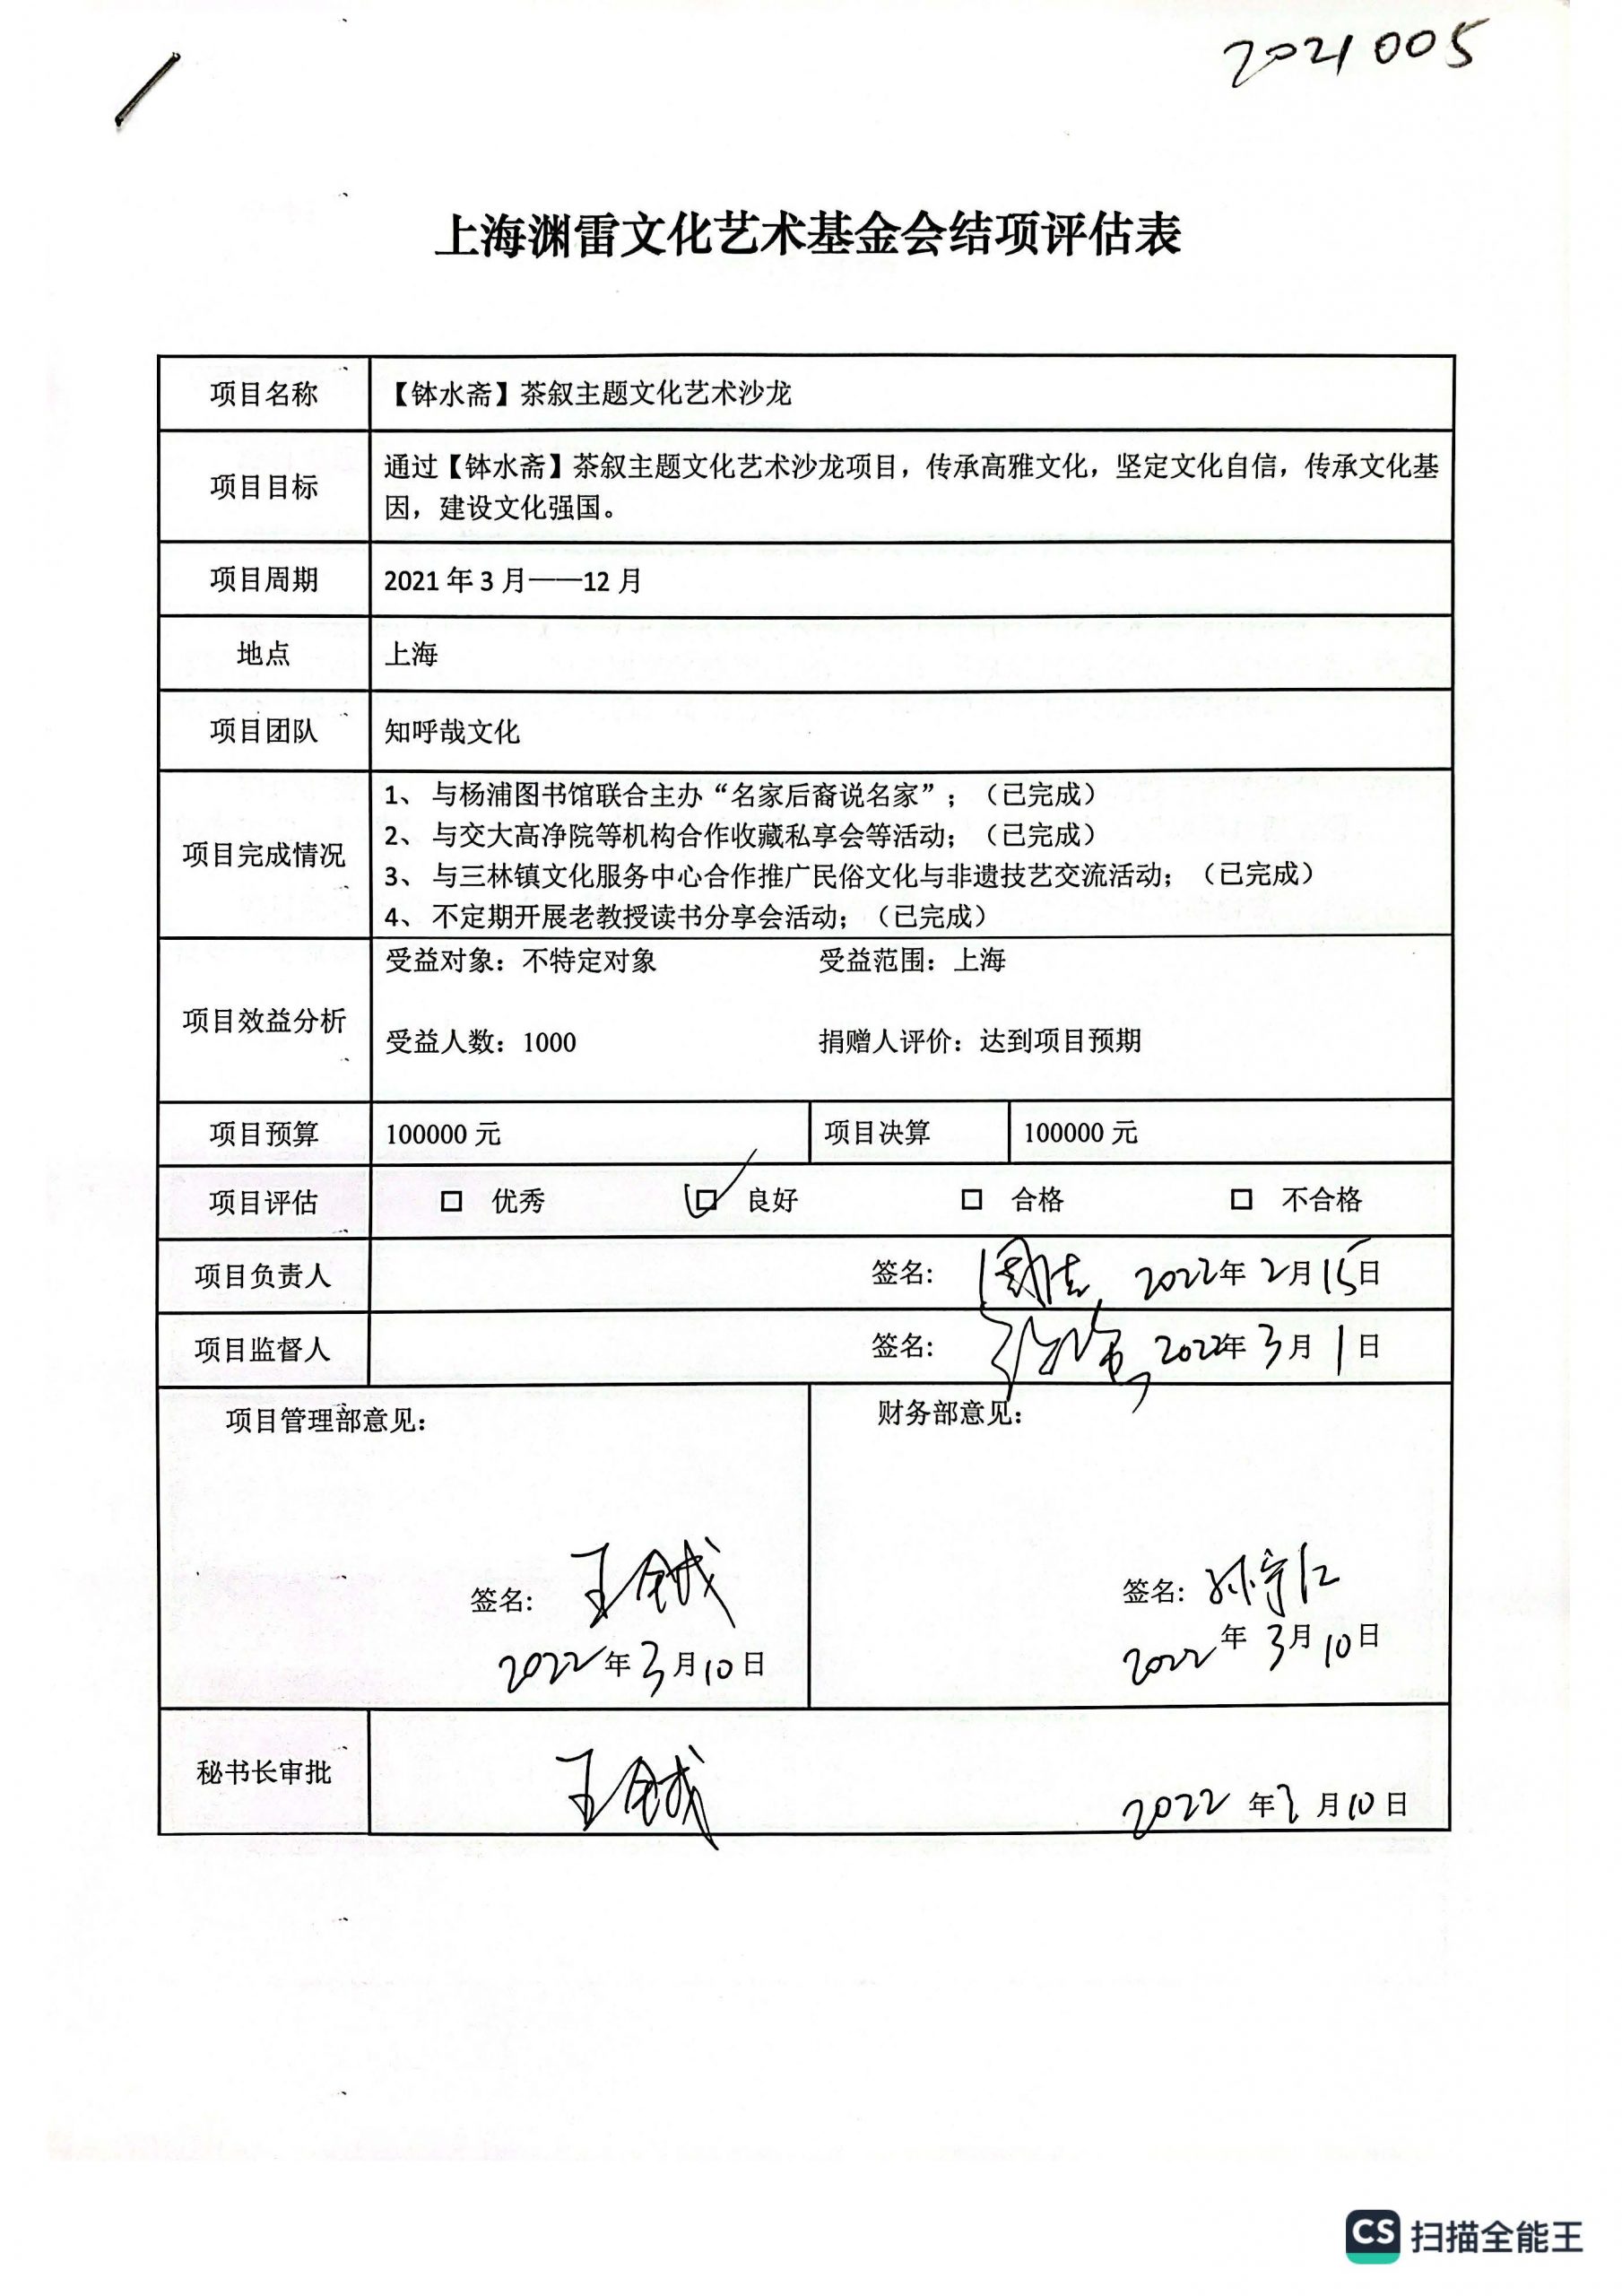 2021005
上海渊雷文化艺术基金会结项评估表
项目名称 【钵水斋】茶叙主题文化艺术沙龙
项目目标 通过【钵水斋】茶叙主题文化艺术沙龙项目，传承高雅文化，坚定文化自信，传承文化基
因，建设文化强国。
项目周期 2021 年 3 月——12 月
地点 上海
项目团队 知呼哉文化
项目完成情况
1、 与杨浦图书馆联合主办“名家后裔说名家”；（已完成）
2、 与交大高净院等机构合作收藏私享会等活动；（已完成）
3、 与三林镇文化服务中心合作推广民俗文化与非遗技艺交流活动；（已完成）
4、 不定期开展老教授读书分享会活动；（已完成）
项目效益分析
受益对象：不特定对象 受益范围：上海
受益人数：1000 捐赠人评价：达到项目预期
项目预算 100000 元 项目决算 100000 元
项目评估 □ 优秀 ☑ 良好 □ 合格 □ 不合格
项目负责人 签名： 2022年 2月 15日
项目监督人 签名： 2022年 3月 1日
项目管理部意见： 财务部意见：
签名： 签名：孙守仁
2022年 3月 10日 2022年 3月 10日
秘书长审批 2022 年 3 月 10 日
CS 扫描全能王